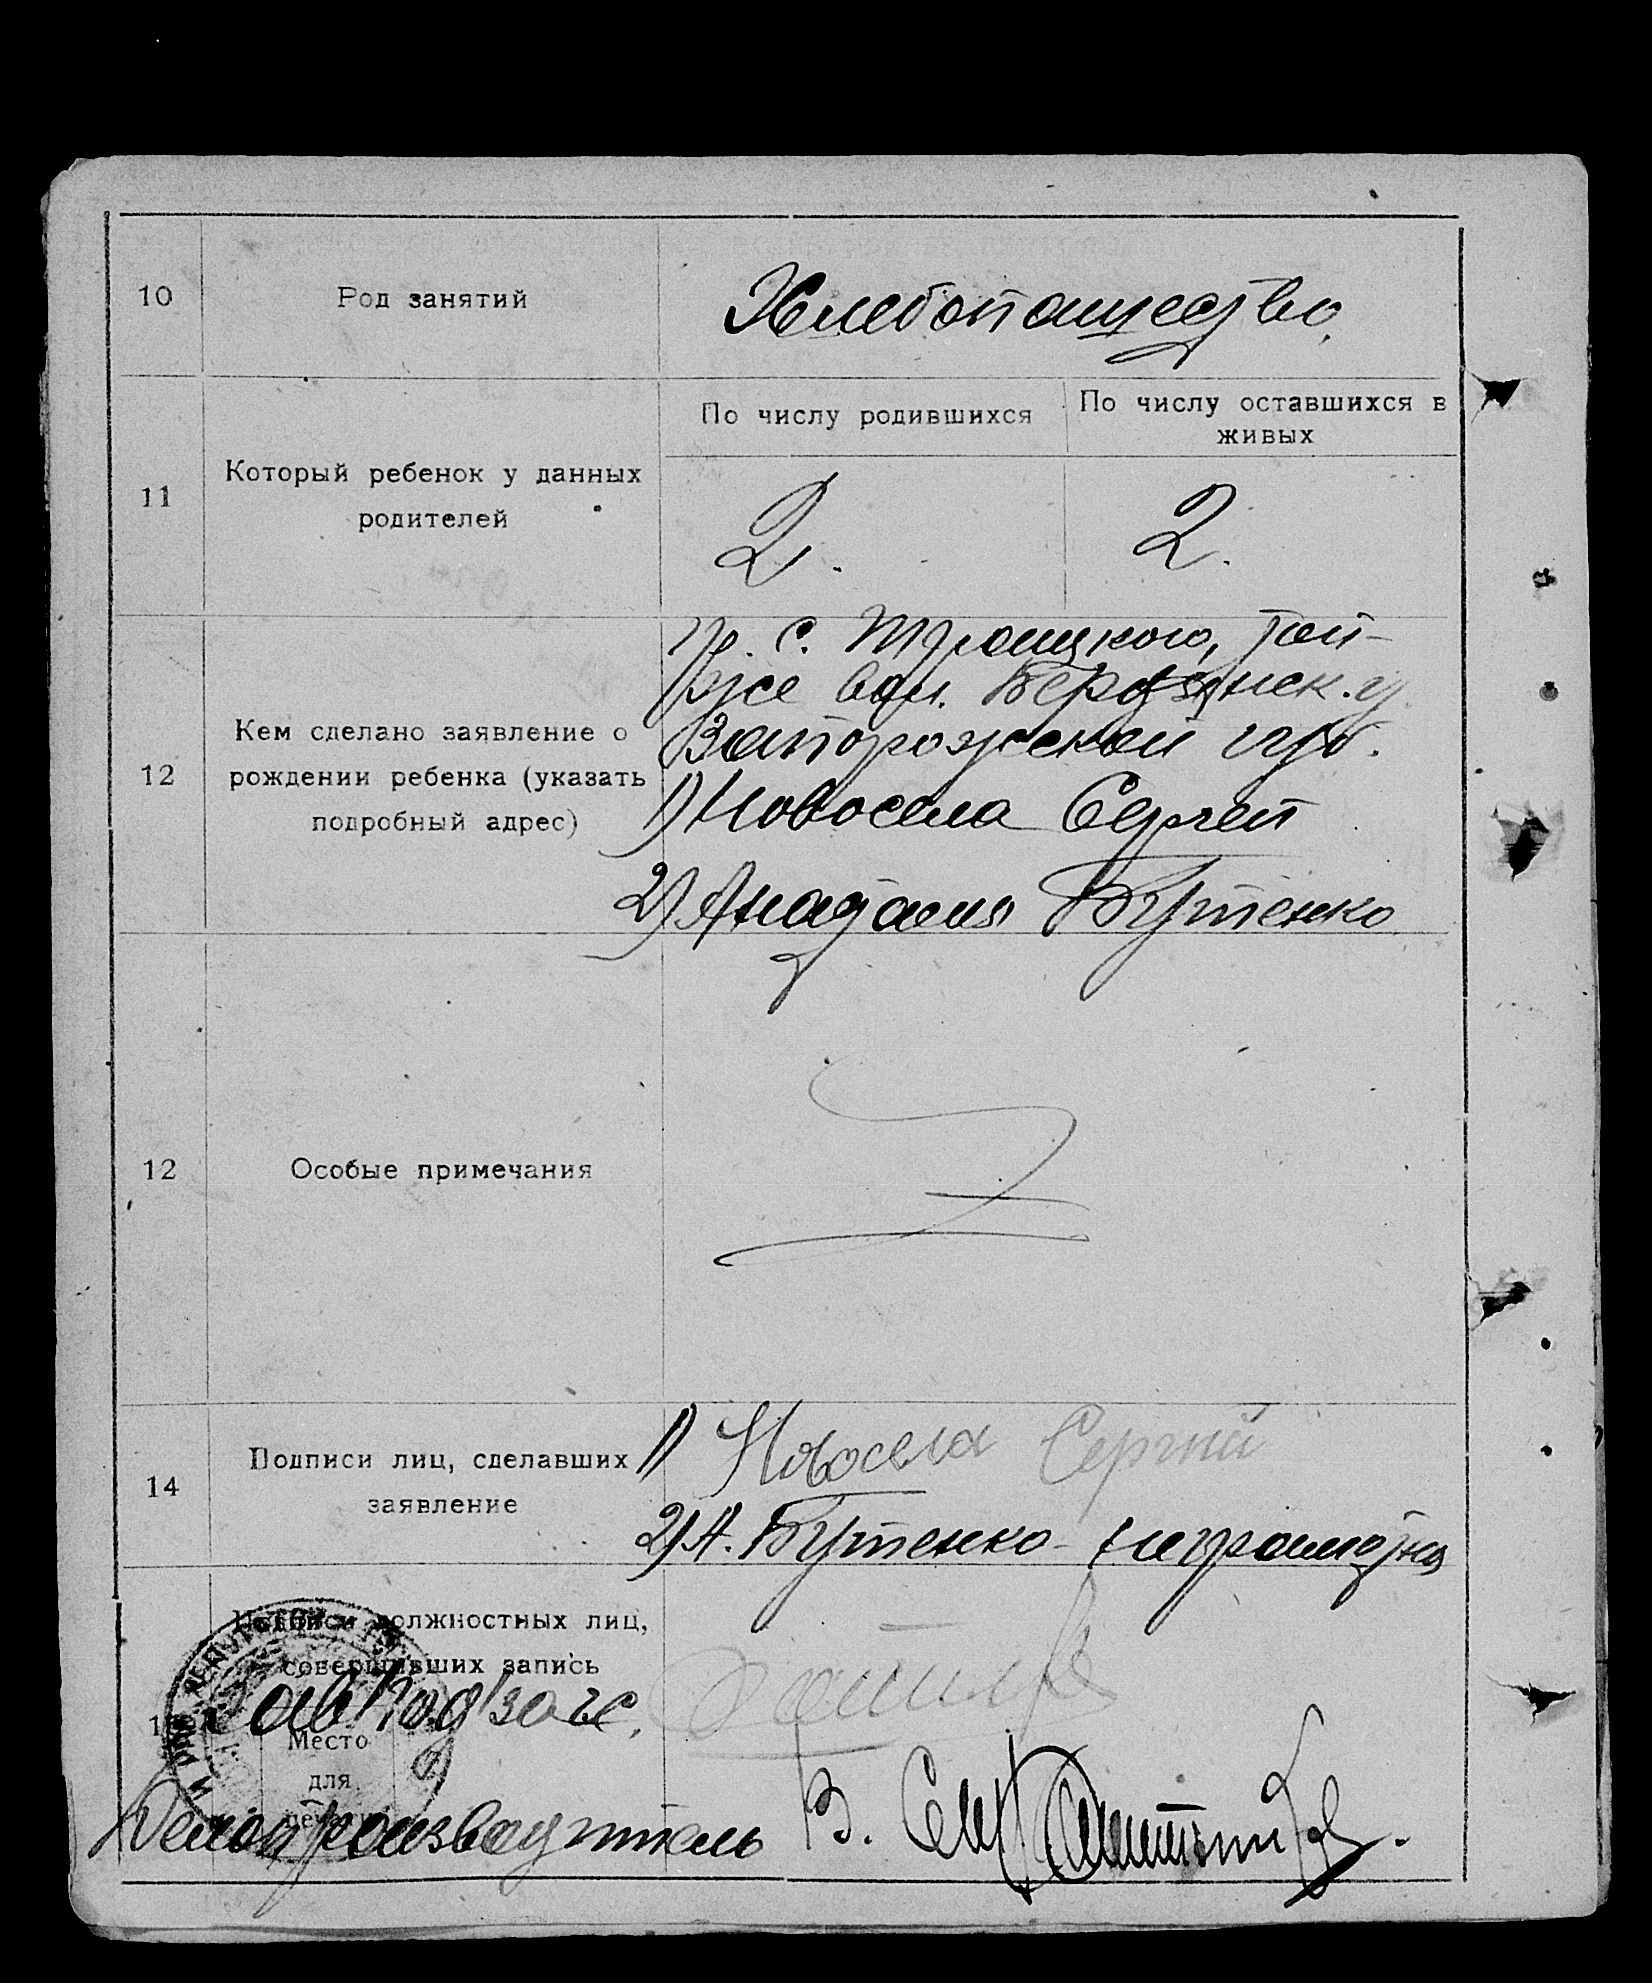 10
Род занятий
Хлебопашество
По числу родившихся
По числу оставшихся в
живых
11
Который ребенок у данных
родителей
2.
2.
12
Кем сделано заявление о
рождении ребенка (указать
подробный адрес)
гр. с. Троицкого, той-
же вол. Бердянск. у
Запорожской губ.
1) Новосела Сергей
2) Анастасия Бутенко
12
Особые примечания
14
Подписи лиц, сделавших
заявление
1) Новосела Сергий
2) А. Бутенко - неграмотная
Подписи должностных лиц,
совершивших запись
Зав. Подзагс.
Место
для
печати
Делопроизводитель В.